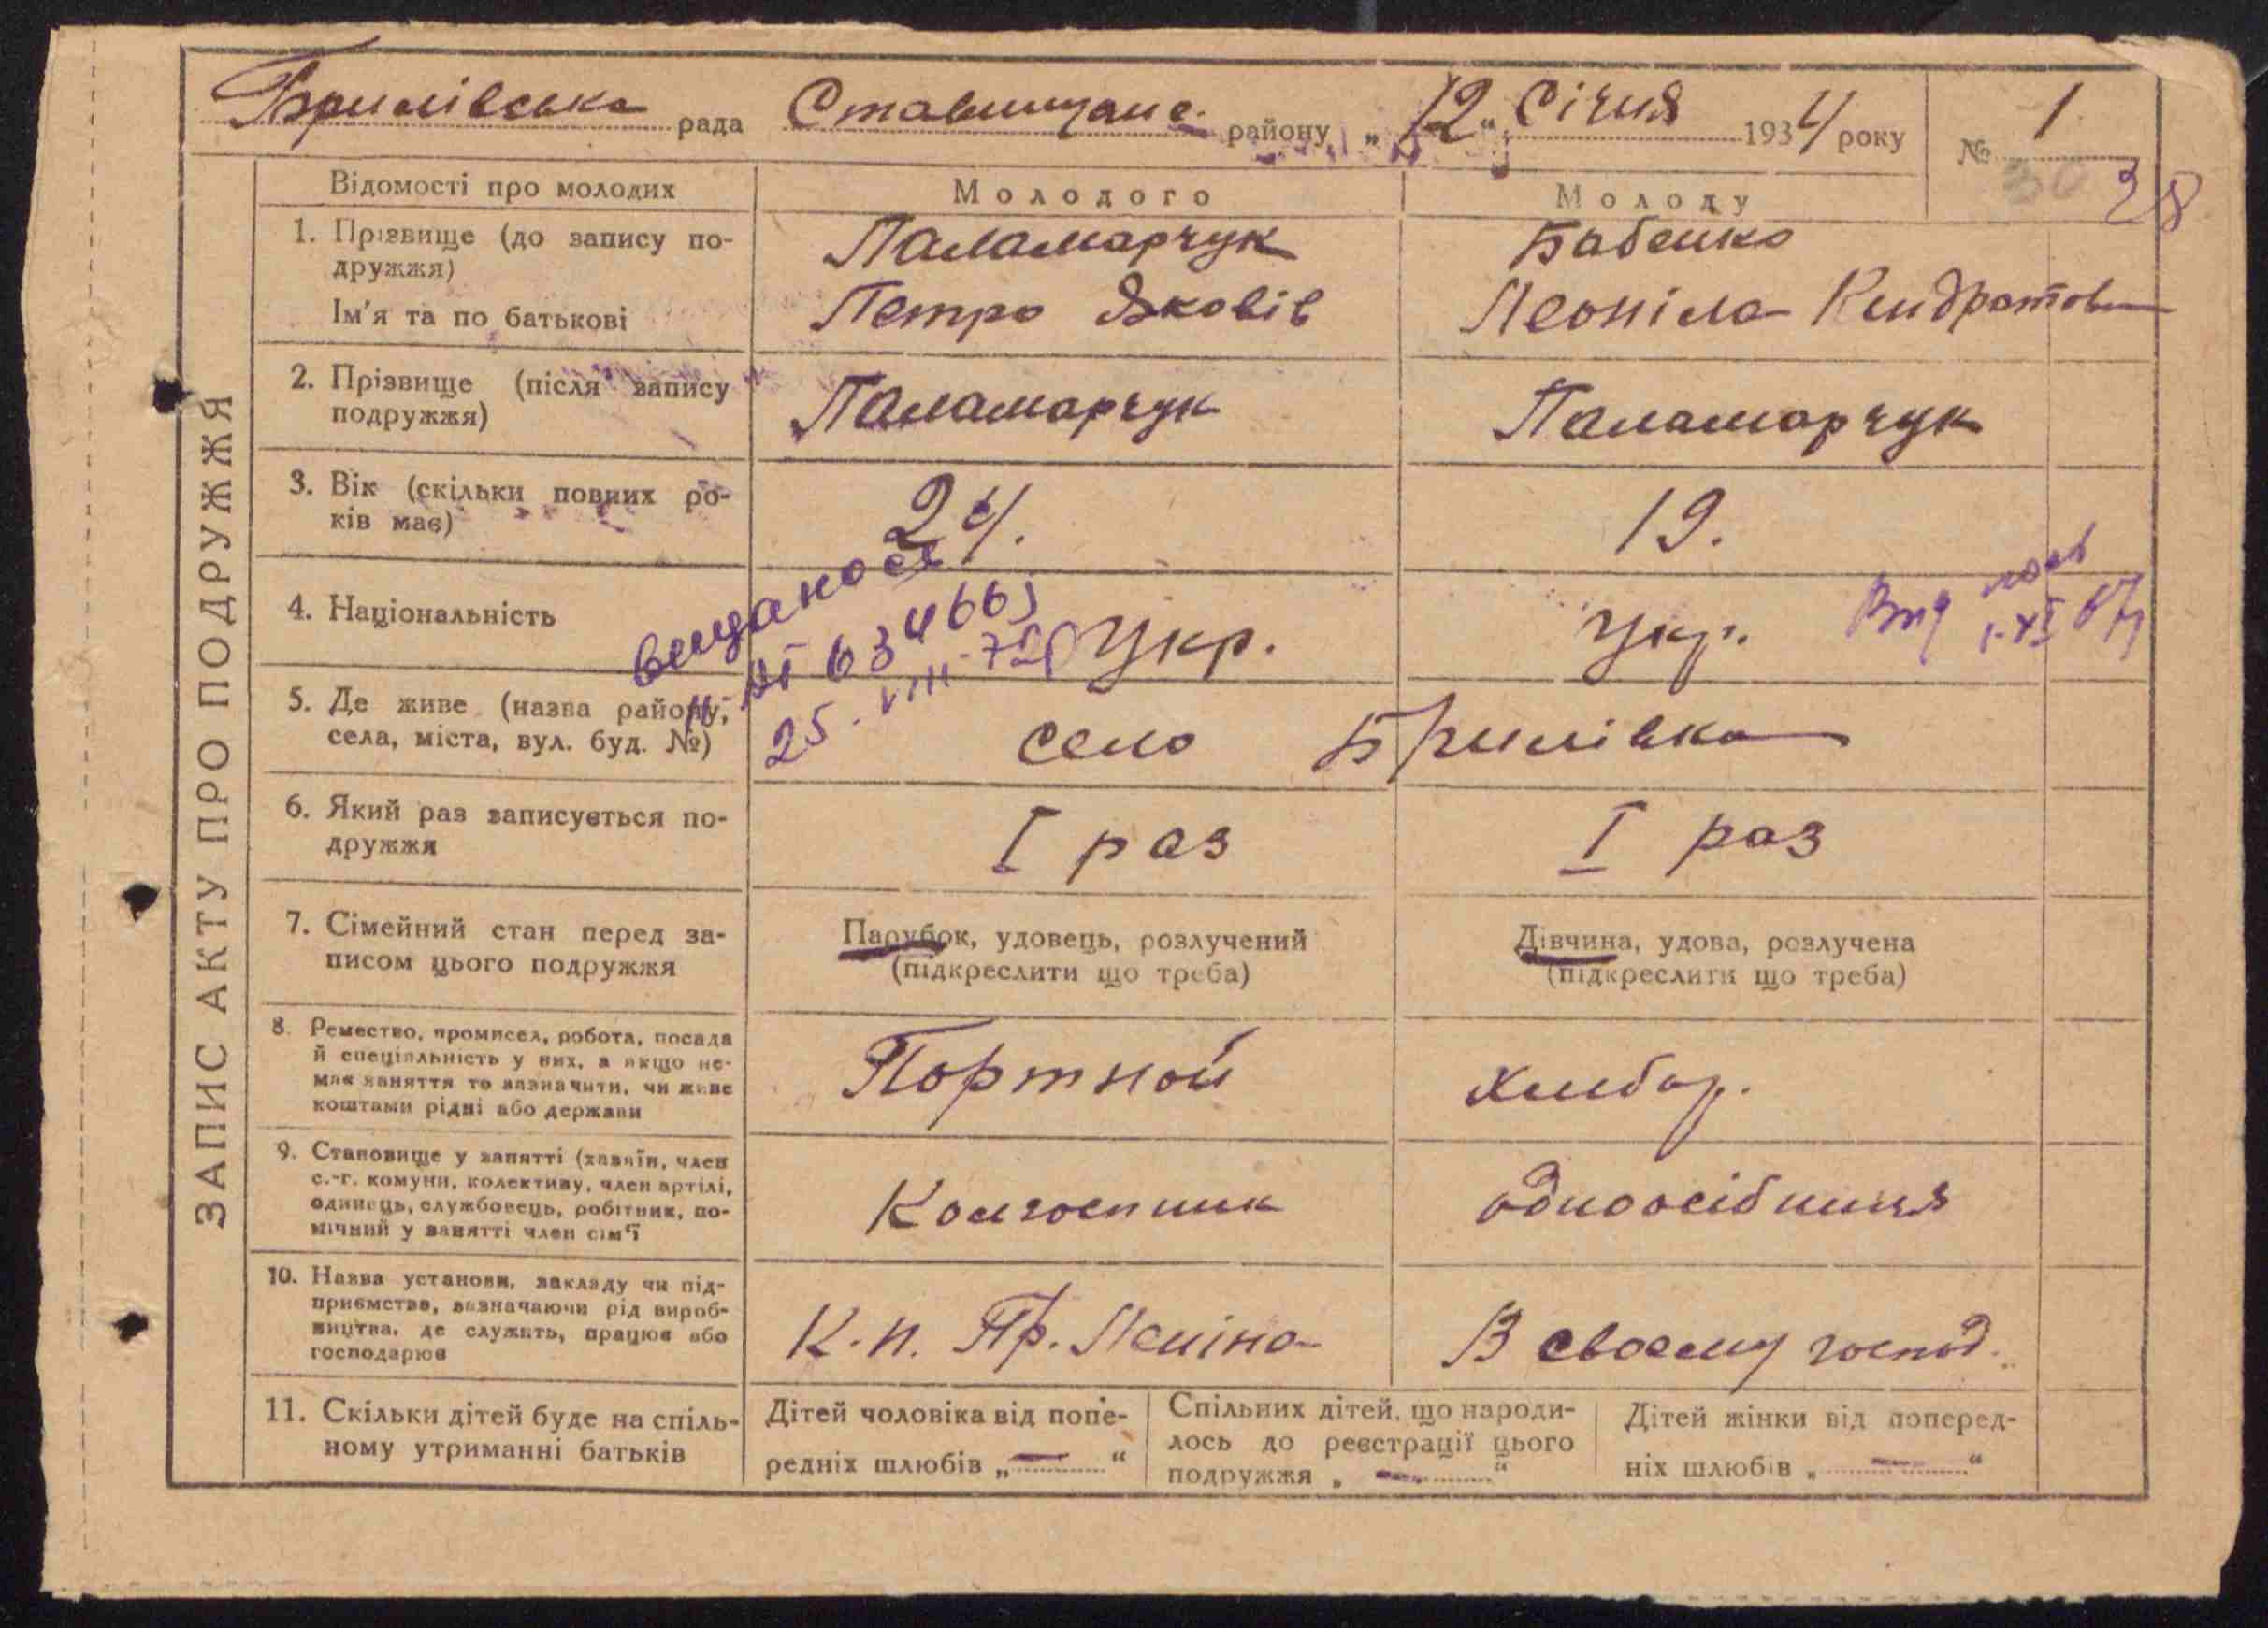 Брилівська рада Ставищанс. району „12“ Січня 1934 року № 1
30 28
ЗАПИС АКТУ ПРО ПОДРУЖЖЯ
Відомості про молодих Молодого Молоду
1. Прізвище (до запису по-
дружжя) Паламарчук Бабенко
Ім'я та по батькові Петро Яковів Леоніла Кондратовн
2. Прізвище (після запису
подружжя) Паламарчук Паламарчук
3. Вік (скільки повних ро-
ків має) 24. 19.
4. Національність Укр. Укр.
видалось
634665
25. VIII-72р
1-XI 67р
5. Де живе (назва району,
села, міста, вул. буд. №) село Брилівка
6. Який раз записується по-
дружжя I раз I раз
7. Сімейний стан перед за-
писом цього подружжя
Парубок, удовець, розлучений
(підкреслити що треба)
Дівчина, удова, розлучена
(підкреслити що треба)
8. Ремество, промисел, робота, посада
й спеціальність у них, а якщо не-
має заняття то зазначити, чи живе
коштами рідні або держави
Портной хлібор.
9. Становище у занятті (хазяїн, член
с.-г. комуни, колективу, член артілі,
одинець, службовець, робітник, по-
мічний у занятті член сім'ї
Колгоспник одноосібниця
10. Назва установи, закладу чи під-
приємства, зазначаючи рід вироб-
ництва, де служить, працює або
господарює
К.п. Пр. Леніна В своєму господ.
11. Скільки дітей буде на спіль-
ному утриманні батьків
Дітей чоловіка від попе-
редніх шлюбів „—“
Спільних дітей, що народи-
лось до реєстрації цього
подружжя „—“
Дітей жінки від поперед-
ніх шлюбів „—“